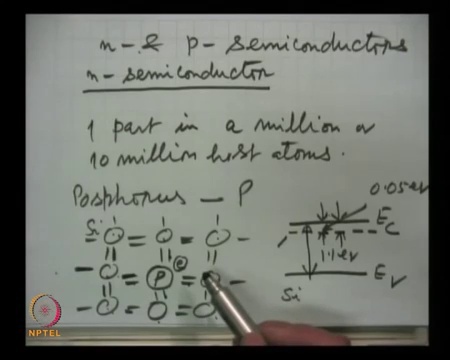 n- & p- semiconductors
n- semiconductor
1 part in a million or
10 million host atoms.
Posphorus - P
0.05 eV
Ec
1.1 eV
Ev
Si
Si
P
e
NPTEL